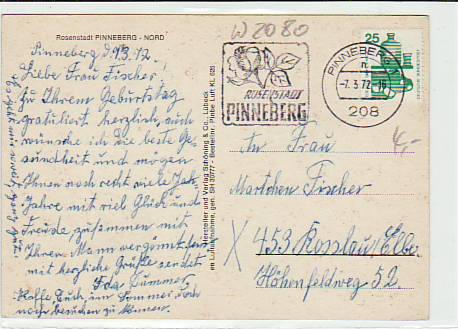 W 2080
Rosenstadt PINNEBERG - NORD
Pinneberg d. 7.3.72
Liebe Frau Fischer!
Zu Ihrem Geburtstag
gratuliert herzlich, auch
wünsche ich die beste Ge-
sundheit und mögen
Ihnen noch recht viele Jah-
Jahre mit viel Glück und
Freude, zusammen mit
Ihrem Mann vergönnt sein
mit herzliche Grüße sendet
Ida Lümmer
hoffe, Euch im Sommer doch
noch besuchen zu können.
Hersteller und Verlag Schöning & Co., Lübeck
ROSENSTADT
PINNEBERG
PINNEBERG 1
-7.3.72-
208
25
4,-
An Frau
Martchen Fischer
X 453 Rosslau/Elbe
Höhenfeldweg 52